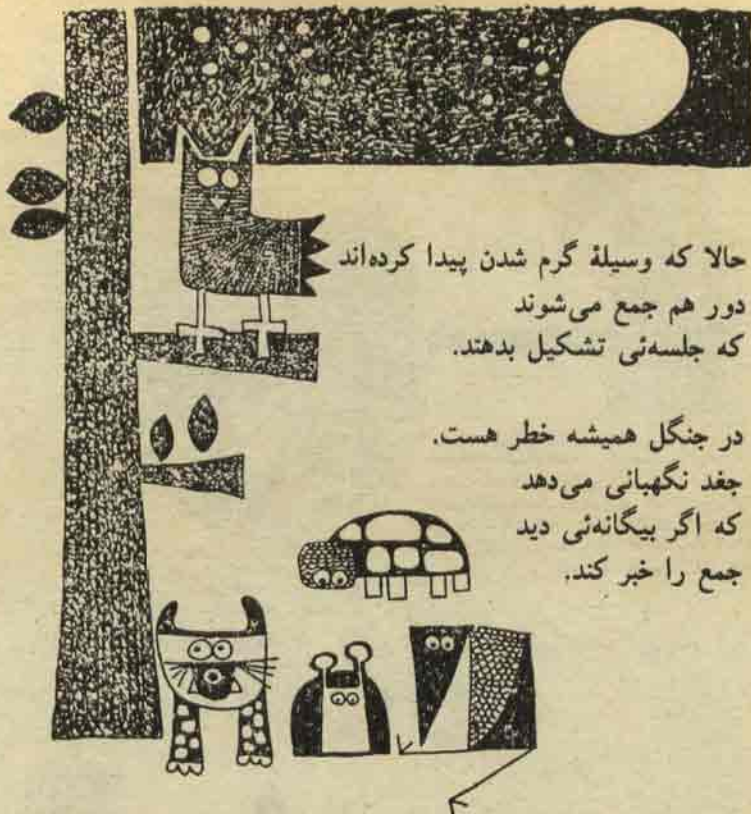 حالا که وسیلهٔ گرم شدن پیدا کرده‌اند
دور هم جمع می‌شوند
که جلسه‌ئی تشکیل بدهند.
در جنگل همیشه خطر هست.
جغد نگهبانی می‌دهد
که اگر بیگانه‌ئی دید
جمع را خبر کند.